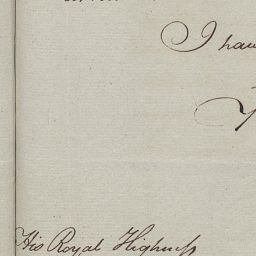 I hav
Y
His Royal Highness